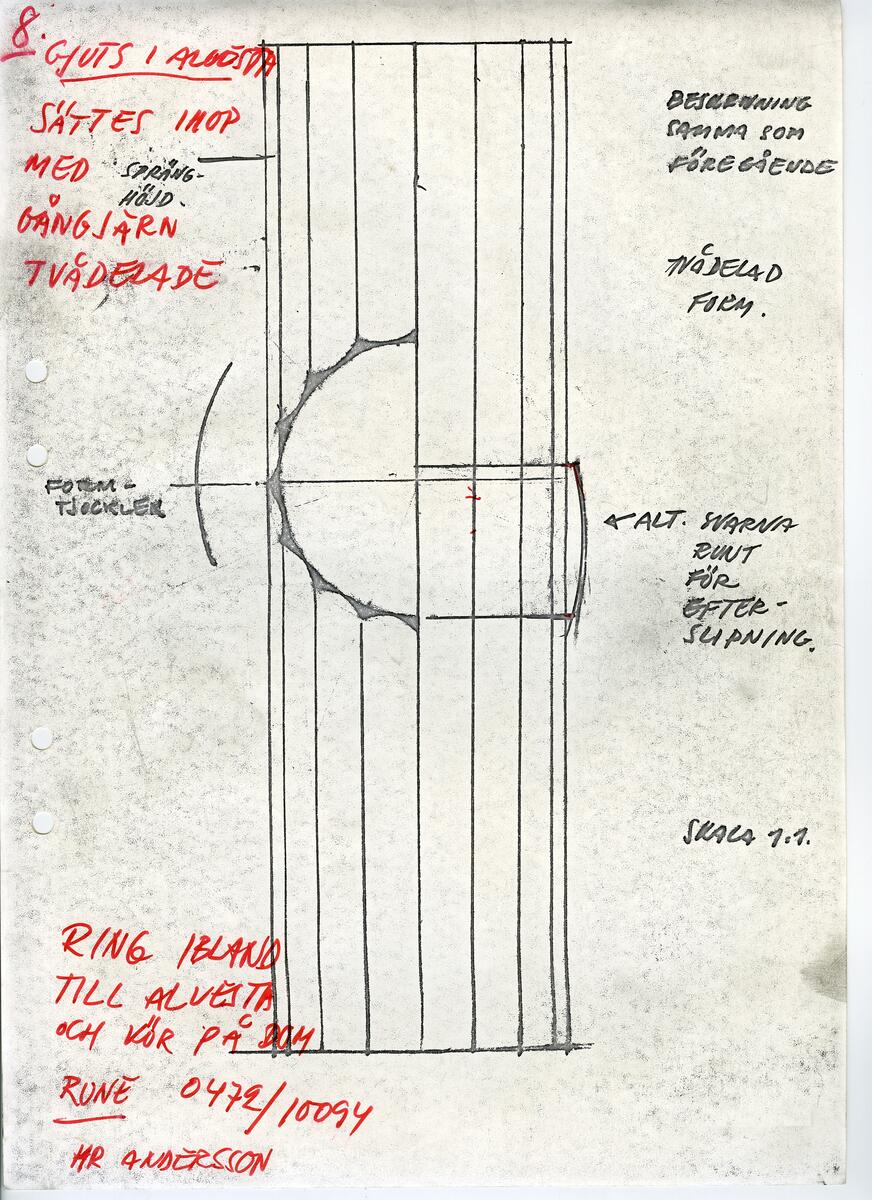 8.
GJUTS I ALVESTA
SÄTTES IHOP
MED
GÅNGJÄRN
TVÅDELADE
SPRÄNG-
HÖJD.
BESKRIVNING
SAMMA SOM
FÖREGÅENDE
TVÅDELAD
FORM.
FORM-
TJOCKLEK
ALT. SVARVA
RUNT
FÖR
EFTER-
SLIPNING.
SKALA 1:1.
RING IBLAND
TILL ALVESTA
OCH KÖR PÅ DOM
RUNE 0472/10094
HR ANDERSSON